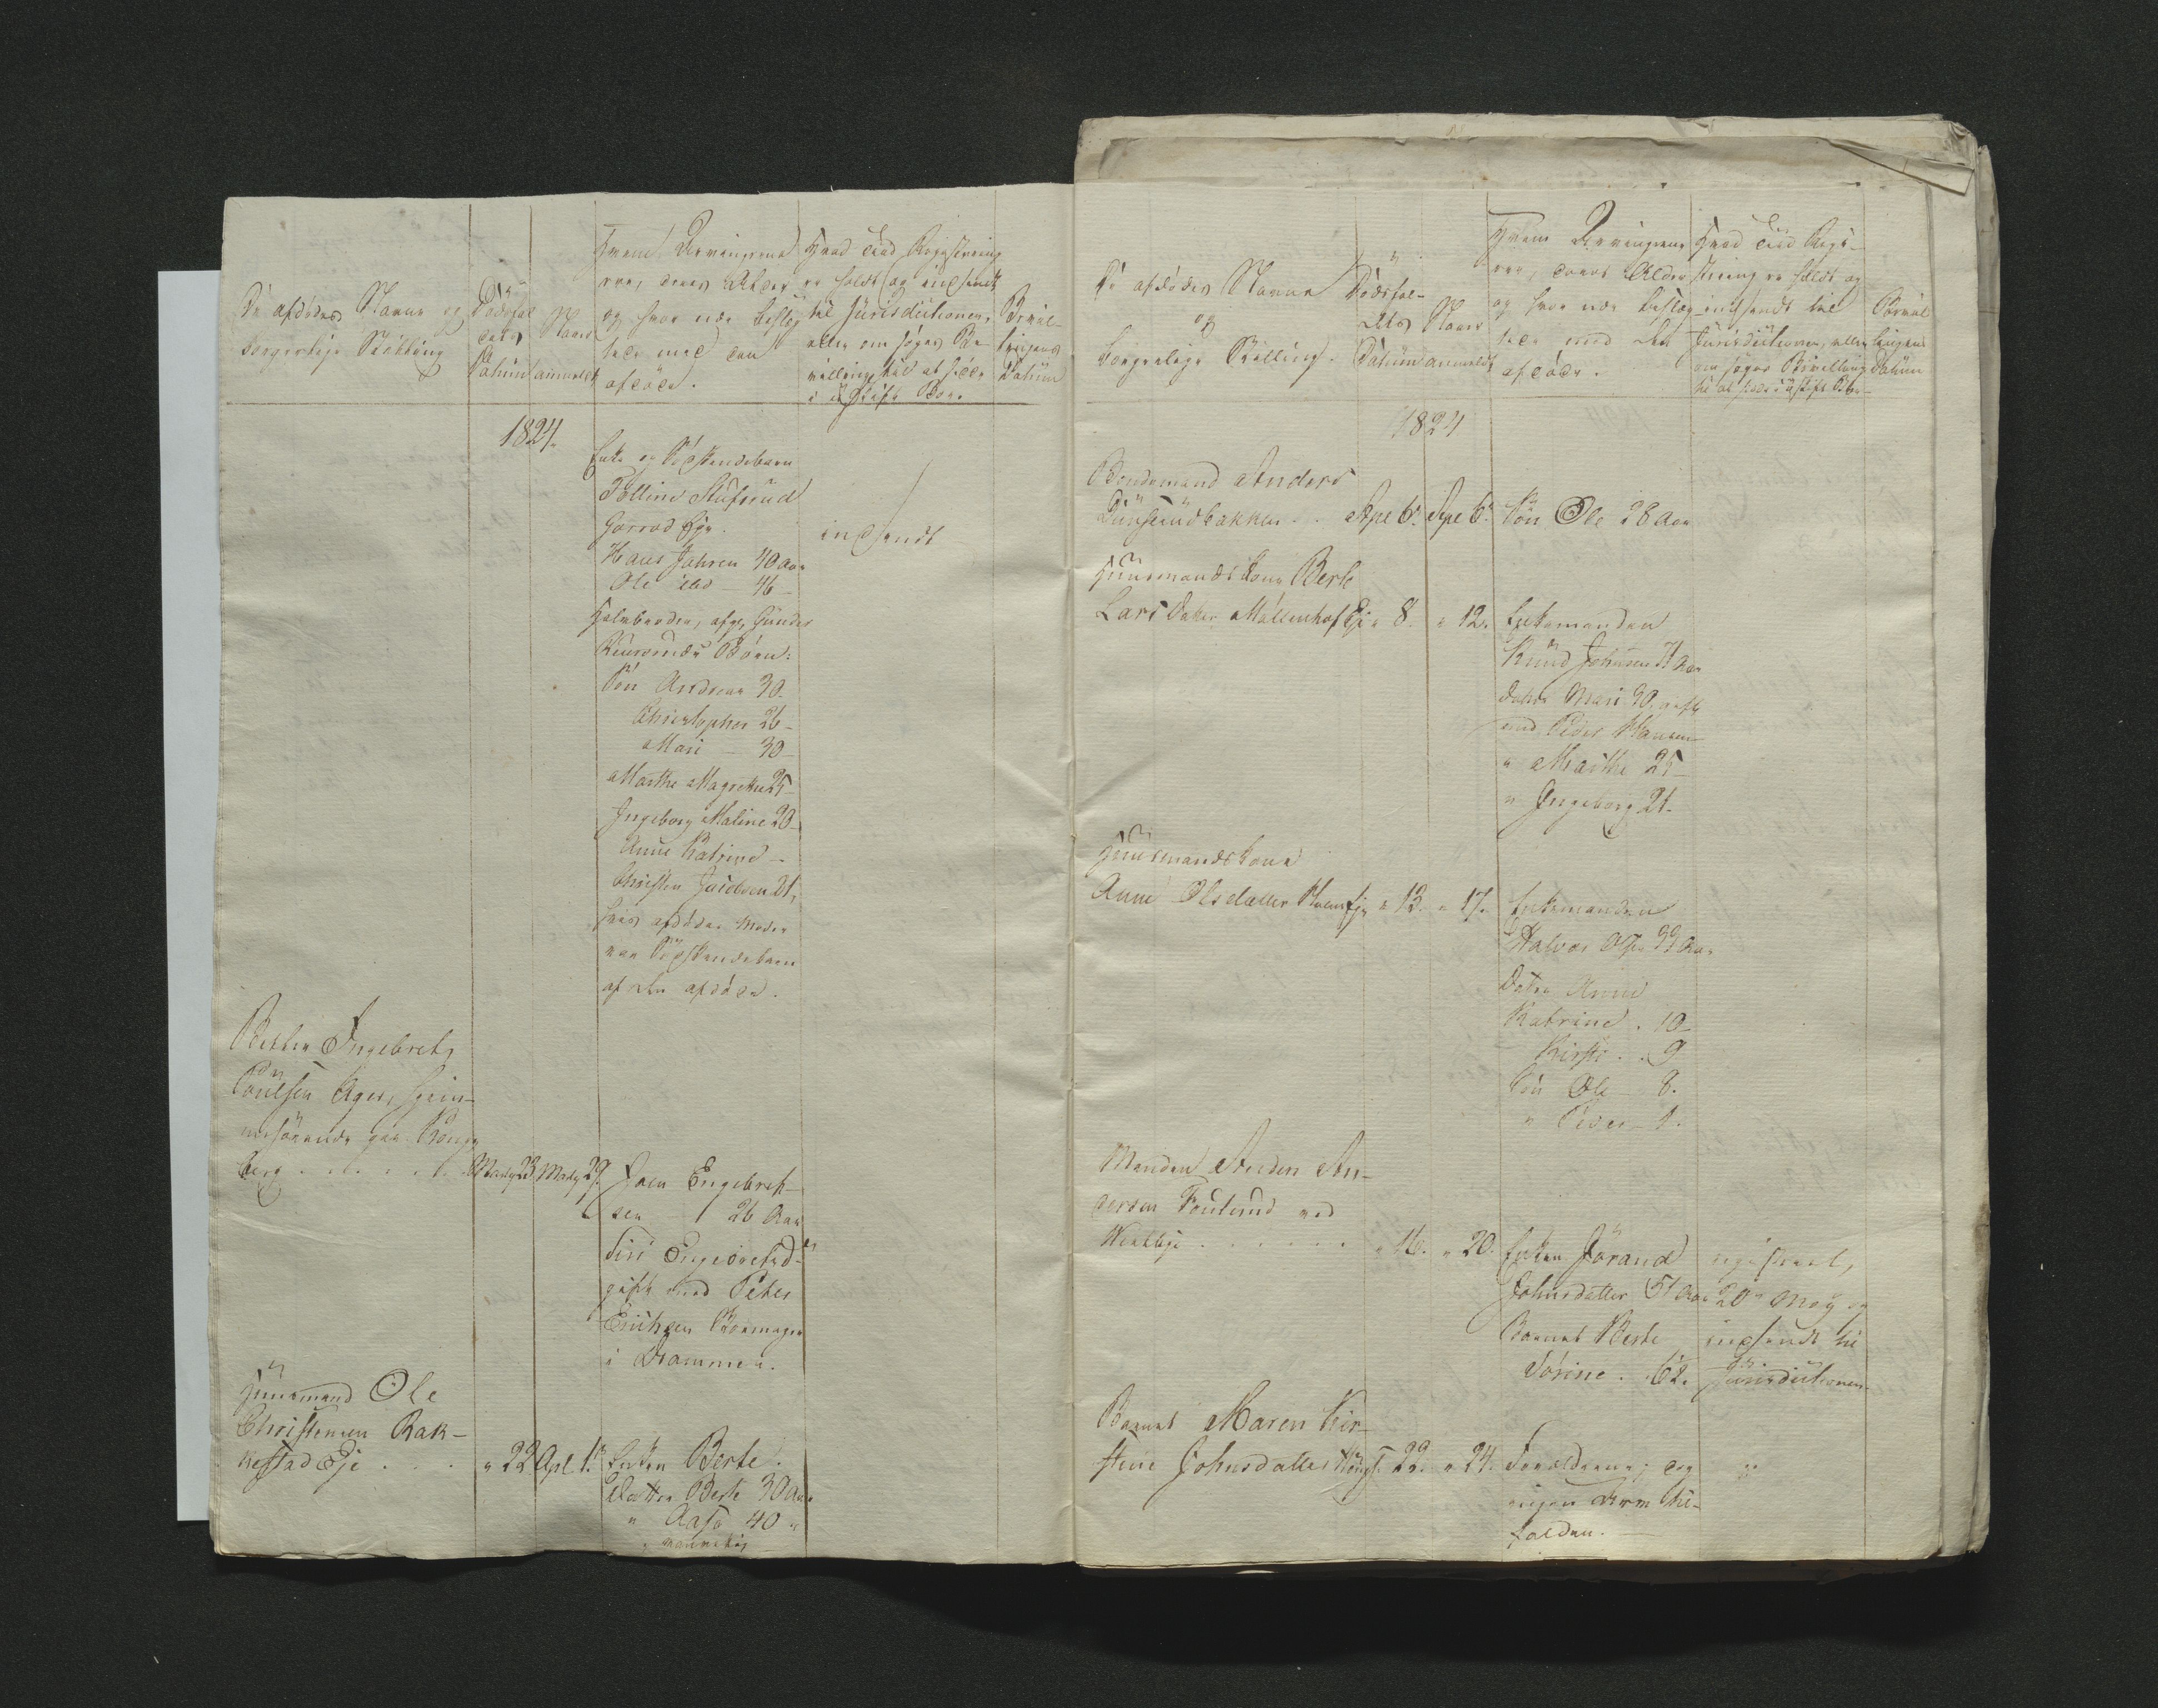 De afdødes Navne og
borgerlige Stilling
Dødsfal
dets
Datum
Naar
anmeldt
Hvem Arvingerne
ere, deres Alder
og hvor nær beslæg
tede med den
afdøde.
Hvad Tiid Registrering
er holdt og indsendt
til Jurisdictionen,
eller om søges Be-
villing til at sidde
i uskiftet Boe.
Bevil-
lingens
Datum
1824.
Enke og Sødskendebarn
Hans Jahren 40 Aar
Ole ibd 46 -
Halvbroder, afg. Gunder
Børn:
Søn Andreas 30.
Christopher 26 -
Mari - 30
Marthe Magrethe 25 -
Ingeborg Maline 20 -
Anne Katrine -
Christen 21,
hvis afdøde Moder
var Sødskendebarn
af den afdøde.
indsendt
Betler Ingebret
Poulsen Ager, hjem-
mehørende paa Kongs
berg
Marty 23
Marty 29.
Joen Engebret-
sen 26 Aar
Siri Engebretsd
gift med Peter
Erichsen
i Drammen.
Huusmand Ole
Christensen Rak-
kestad Eje
" 22
Apl. 1.
Enken Berte.
Datter Berte 30 Aar
" Aase 40 "
De afdødes Navne
og
borgerlige Stilling.
Dødsfal-
dets
Datum
Naar
anmeldt
Hvem Arvingerne
ere, deres Alder
og hvor nær beslæg-
tede med den
afdøde.
Hvad Tiid Regi-
strering er holdt og
indsendt til
Jurisdictionen, eller
om søges Bevilling
til at sidde i uskiftet Boe
Bevil
lingens
Datum
1824
Bondemand Anders
Apl 6. Apl 6. Søn Ole 28 Aar
Huusmandskone Berte
Larsdatter Møllenhof Eje " 8. " 12. Enkemanden
Knud Johnsen 71 Aar
Datter Mari 30, gift
med Peder Hansen
" Marthe 25 -
" Ingeborg 21.
Huusmandskone
Anne Olsdatter Eje " 13. " 17. Enkemanden
Halvor Olsen 33 Aar
Datter Anne
Katrine. 10 -
Kirsti. . 9
Søn Ole - 8.
" Peder - 1.
Manden Anders An-
dersen ved
" 16. " 20. Enken Jörand
Johnsdatter 51 Aar
Barnet Berte
Sörine. 12.
registreret,
20 May og
indsendt til
Jurisdictionen
Barnet Maren Kir-
stine Johnsdatter " 22. " 24. Forældrene; dog
ingen Arv til-
falden.